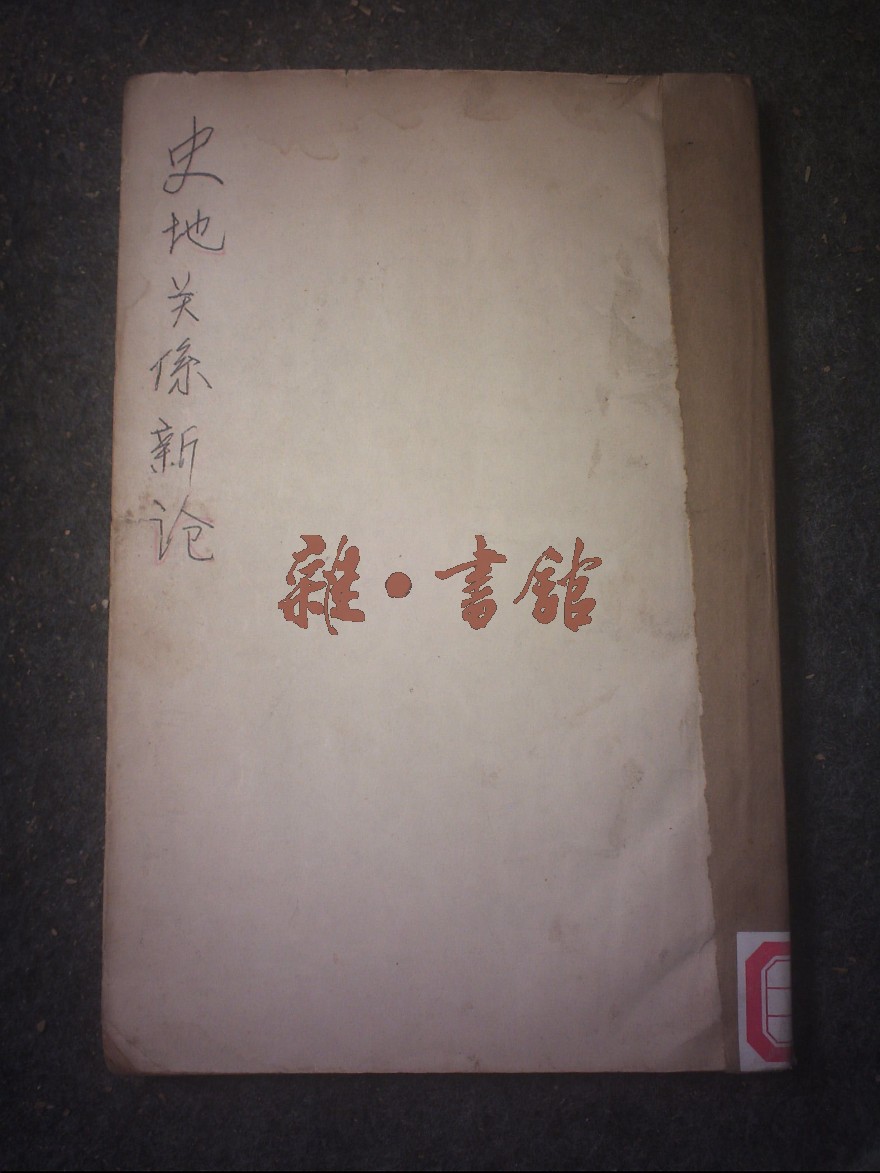 史地关係新论
雜·書館